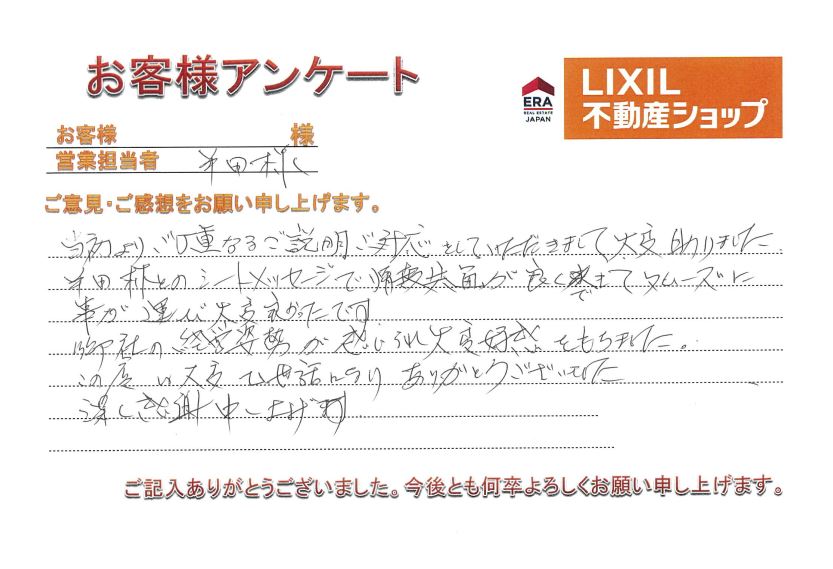 お客様アンケート
ERA
REAL ESTATE
JAPAN
LIXIL
不動産ショップ
お客様 様
営業担当者 半田様
ご意見・ご感想をお願い申し上げます。
当初よりご丁重なるご説明ご対応をしていただきまして大変助りました
半田様とのショートメッセージで情報共有が良くできてスムーズに
事が運び大変良かったです
御社の経営姿勢が感じられ大変好感をもちました。
この度は大変お世話になりありがとうございました
深く感謝申し上げます
ご記入ありがとうございました。今後とも何卒よろしくお願い申し上げます。